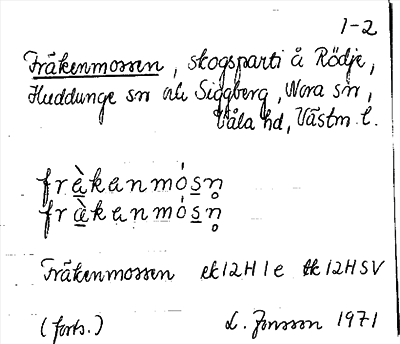 1-2
Fräkenmossen, skogsparti å Rödje,
Huddunge sn och Siggberg, Nora sn,
Våla hd, Västm. l.
frä̀kanmósn̥
frä̀kanmósn̥
Fräkenmossen ek 12H 1e tk 12H SV
(forts.) L. Jonsson 1971